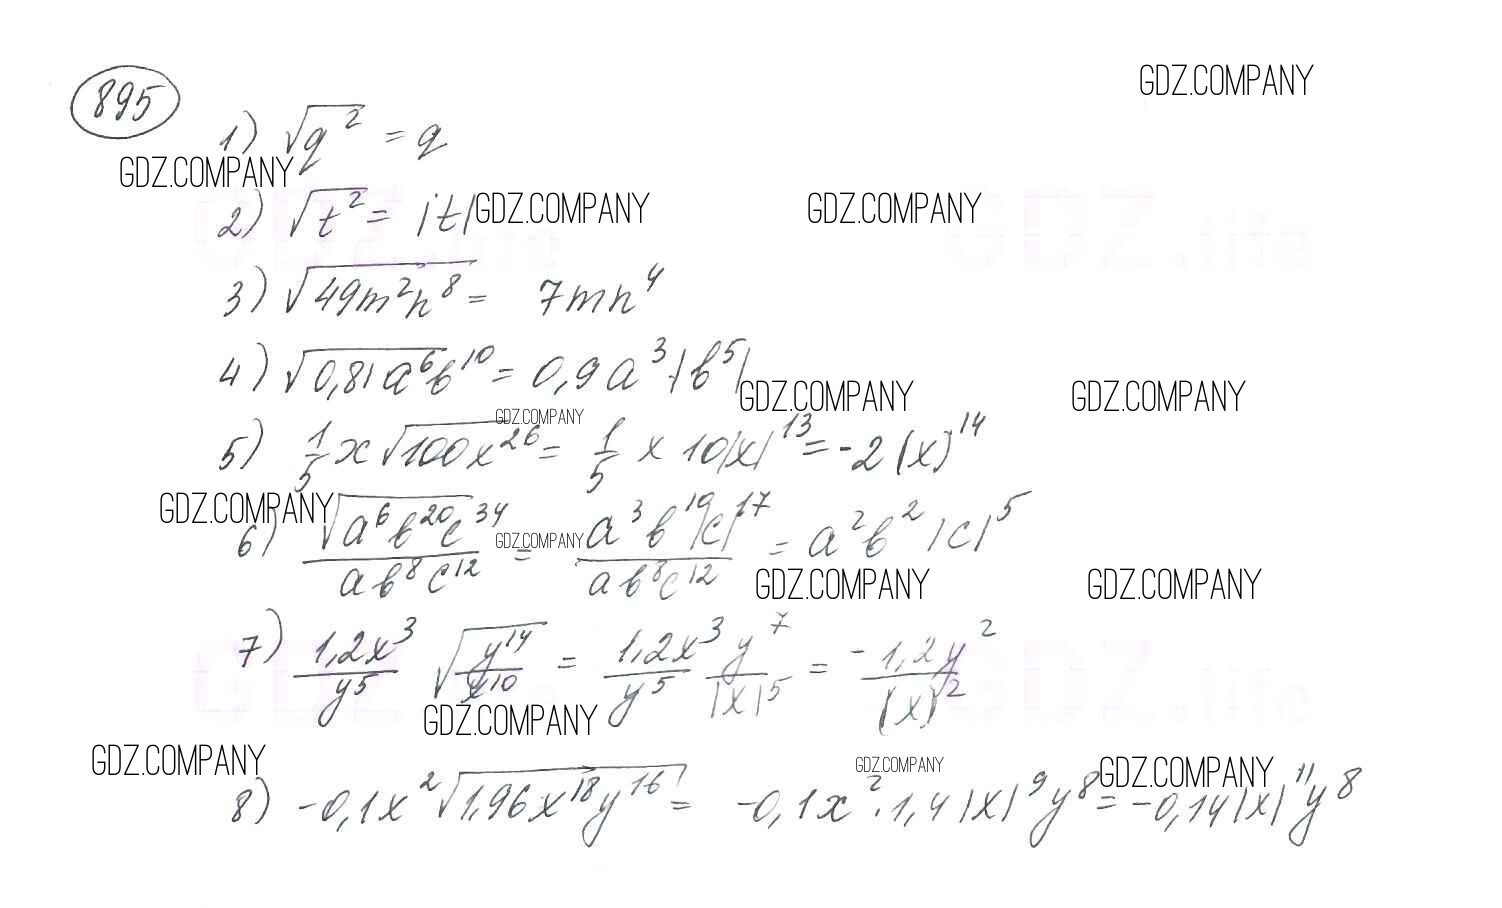 895
GDZ.COMPANY
1) √q² = q
GDZ.COMPANY
2) √t² = |t|
GDZ.COMPANY GDZ.COMPANY
3) √49m²n⁸ = 7mn⁴
4) √0,81a⁶b¹⁰ = 0,9a³·|b⁵|
GDZ.COMPANY GDZ.COMPANY
GDZ.COMPANY
5) 1/5 x √100x²⁶ = 1/5 x 10|x|¹³ = -2(x)¹⁴
GDZ.COMPANY
6) √a⁶b²⁰c³⁴ / ab⁸c¹² = a³b¹⁰|c|¹⁷ / ab⁸c¹² = a²b²|c|⁵
GDZ.COMPANY
GDZ.COMPANY GDZ.COMPANY
7) 1,2x³/y⁵ √y¹⁴/x¹⁰ = 1,2x³/y⁵ y⁷/|x|⁵ = -1,2y²/(x)²
GDZ.COMPANY
GDZ.COMPANY GDZ.COMPANY GDZ.COMPANY
8) -0,1x²√1,96x¹⁸y¹⁶ = -0,1x²·1,4|x|⁹y⁸ = -0,14|x|¹¹y⁸